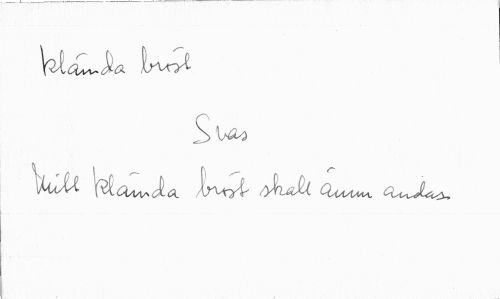 klämda bröst
Svas
Mitt klämda bröst skall ännu andas.